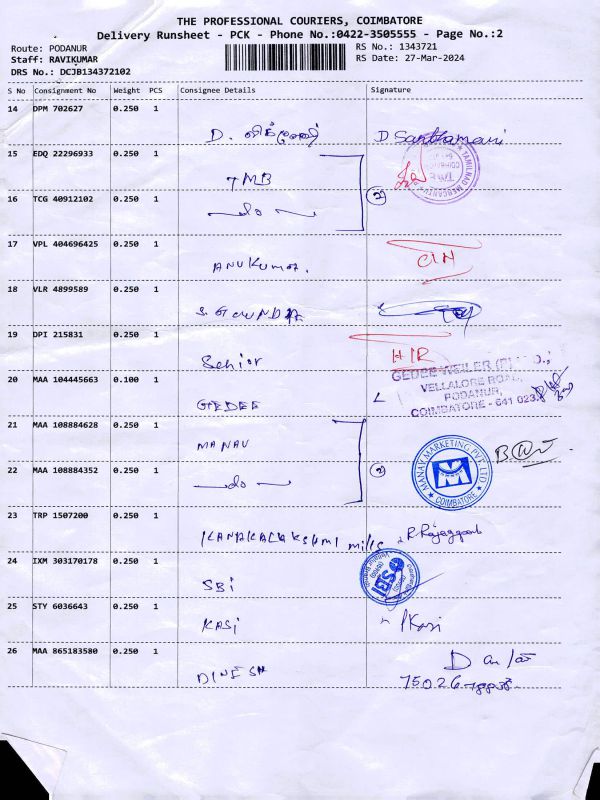 THE PROFESSIONAL COURIERS, COIMBATORE
Delivery Runsheet - PCK - Phone No.:0422-3505555 - Page No.:2
Route: PODANUR RS No.: 1343721
Staff: RAVIKUMAR RS Date: 27-Mar-2024
DRS No.: DCJB134372102
S No Consignment No Weight PCS Consignee Details Signature
14 DPM 702627 0.250 1
D. D Santhamani
15 EDQ 22296933 0.250 1
TMB
16 TCG 40912102 0.250 1
do 2
17 VPL 404696425 0.250 1
ANUKUMAR.
18 VLR 4899589 0.250 1
S. GOUNDER
19 DPI 215831 0.250 1
Senior H/R
20 MAA 104445663 0.100 1
GEDEE
GEDEE WEILER
VELLALORE ROAD,
PODANUR,
COIMBATORE - 641 023.
21 MAA 108884628 0.250 1
MANAV
MANAV MARKETING PVT. LTD
COIMBATORE
22 MAA 108884352 0.250 1
do 2
23 TRP 1507200 0.250 1
KANAKALAKSHMI mills
24 IXM 303170178 0.250 1
SBI
SBI
25 STY 6036643 0.250 1
KASI Kasi
26 MAA 865183580 0.250 1
DINESH
75026